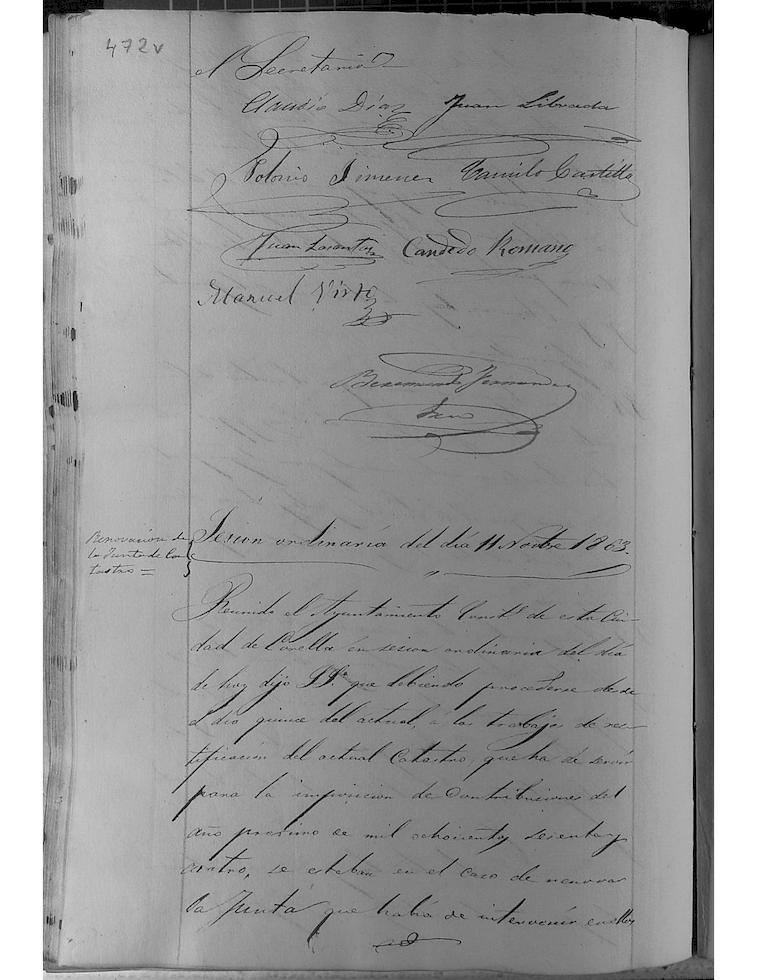 472v
el Secretario
Claudio Díaz Juan Librada
Polonio Jimenez Camilo Castilla
Juan Lasantas Candido Romano
Manuel Virto
Beremundo Fernandez
Renovacion de
la Junta de Ca
tastro =
Sesion ordinaria del dia 11 Novbre 1863.
Reunido el Ayuntamiento Constl. de esta Ciu-
dad de Corella en sesion ordinaria del dia
de hoy dijo S.Sa. que debiendo procederse desde
el dia quince del actual, a los trabajos de rec-
tificacion del actual Catastro, que ha de servir
para la imposicion de Contribuciones del
año procsimo de mil ochocientos sesenta y
cuatro, se estaba en el caso de renovar
la Junta que habia de intervenir en ellos